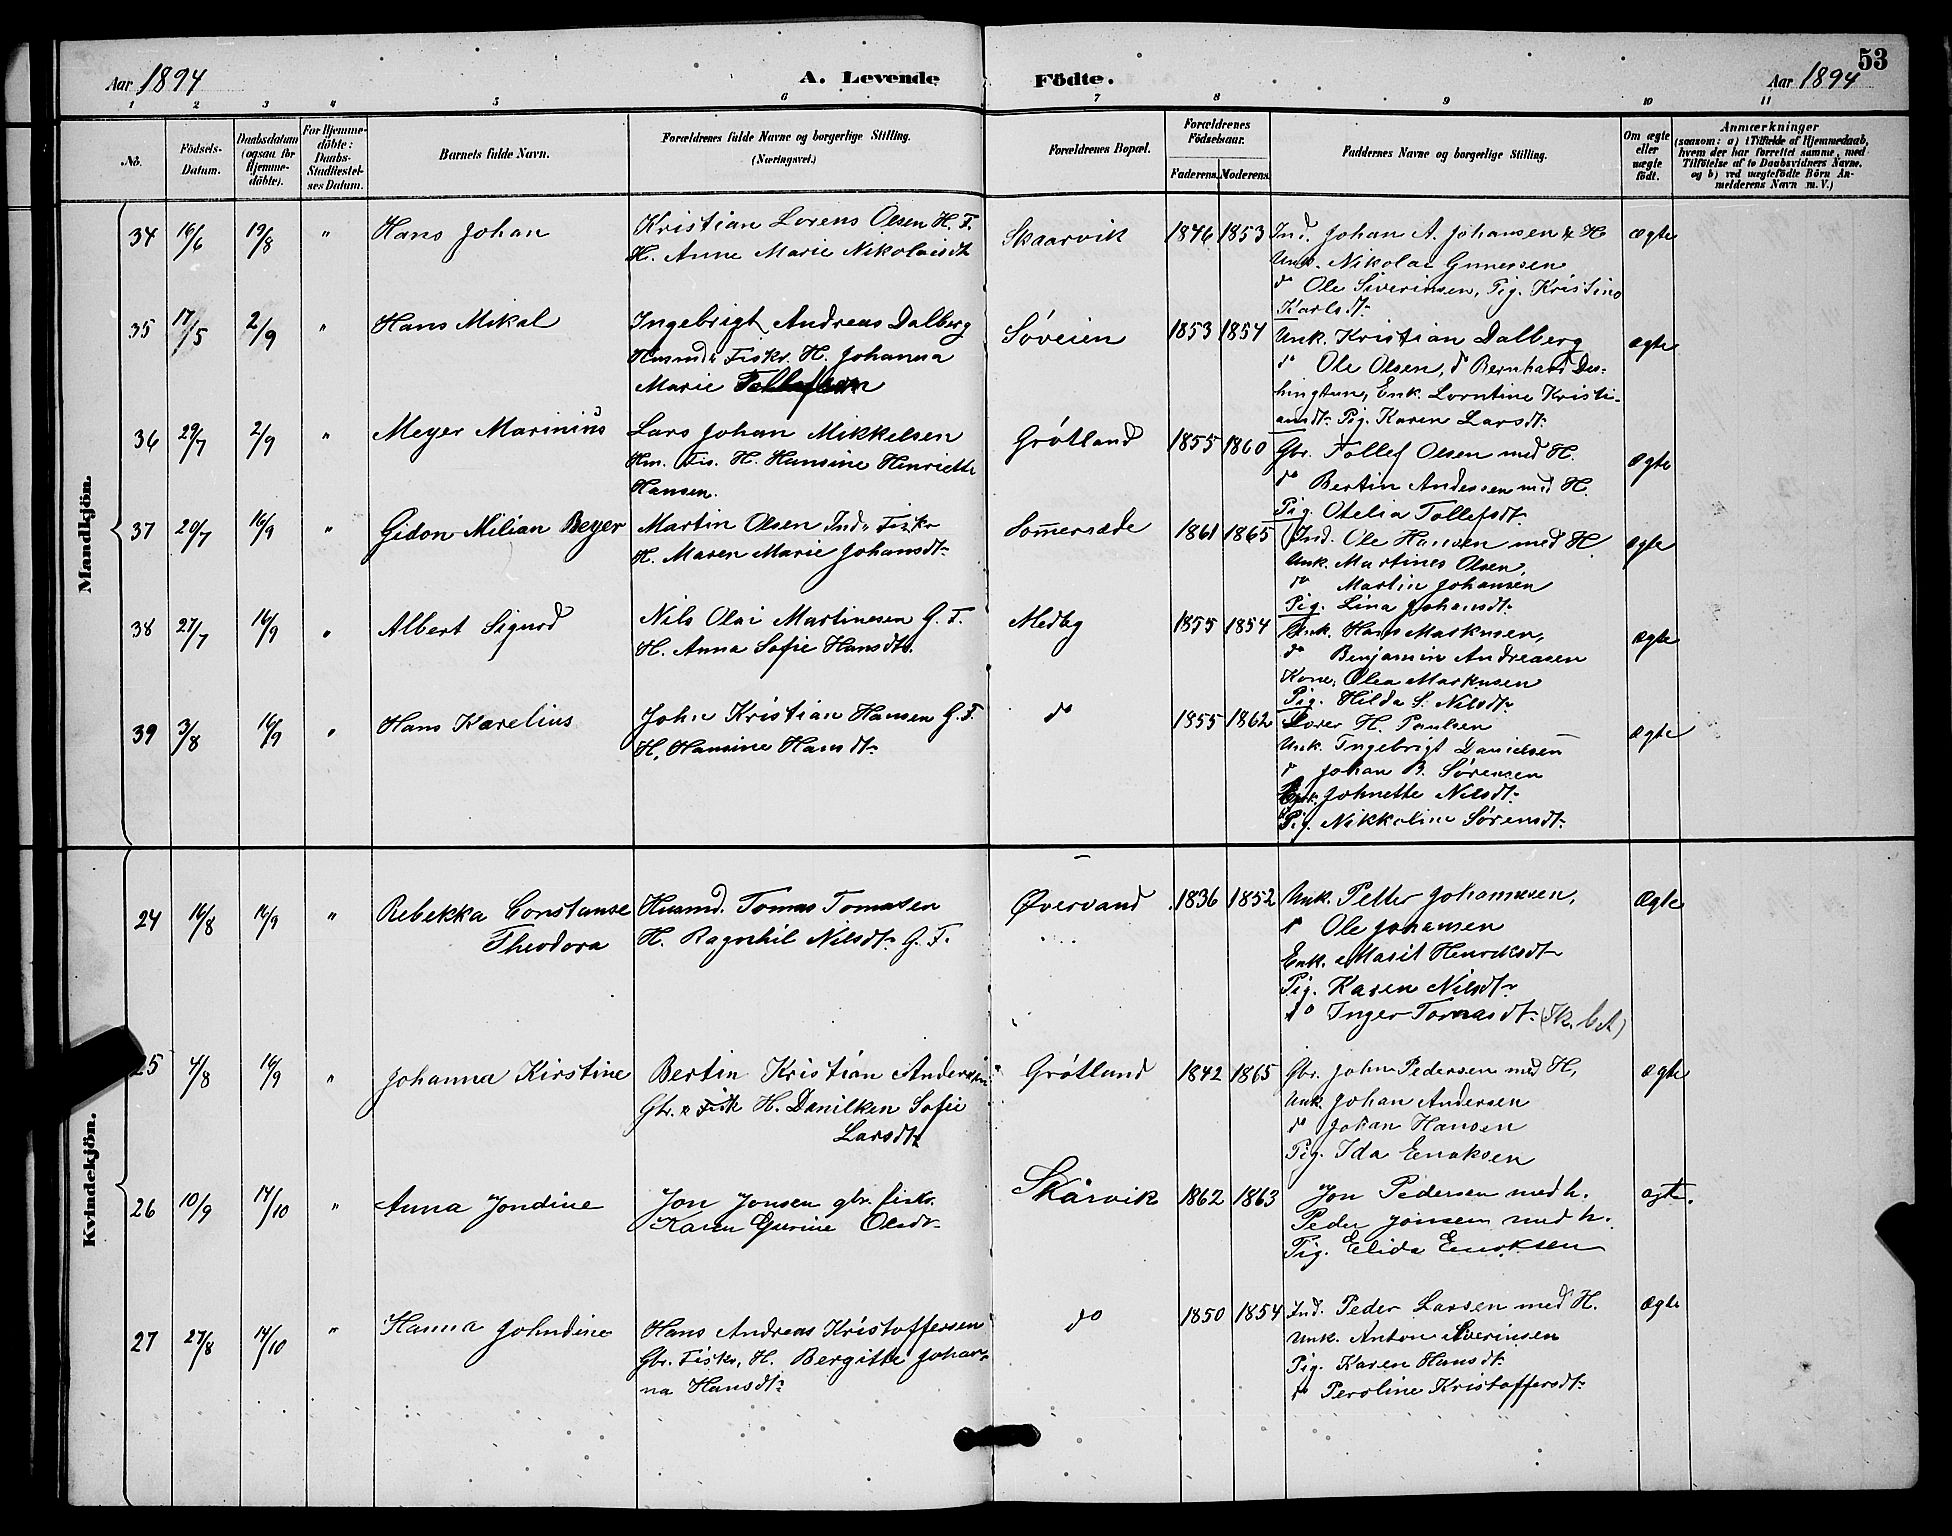 53
Aar 1894
A. Levende
Födte.
Aar 1894
1 2 3 4 5 6 7 8 9 10 11
No.
Födsels-
Datum.
Daabsdatum
(ogsaa for
Hjemme-
döbte).
For Hjemme-
döbte:
Daabs-
Stadfæstel-
ses Datum.
Barnets fulde Navn.
Forældrenes fulde Navne og borgerlige Stilling.
(Næringsvei.)
Forældrenes Bopæl.
Forældrenes
Födselsaar.
Faderens.
Moderens.
Faddernes Navne og borgerlige Stilling.
Om ægte
eller
uægte
födt.
Anmærkninger
(saasom: a) i Tilfælde af Hjemmedaab,
hvem der har forrettet samme, med
Tilföielse af to Daabsvidners Navne,
og b) ved uægtefödte Börn An-
melderens Navn m. V.)
Mandkjön.
34 16/6 19/8 " Hans Johan
Kristian Lorens Olsen H. F.
H. Anne Marie Nikolaisdt
Skaarvik 1846 1853
Ind. Johan A. Johansen & H
Unk. Nikolai Gunessen
do Ole Siverinsen, Pig. Kristine
Karlsdt.
ægte
35 17/5 2/9 " Hans Mikal
Ingebrigt Andreas Dalberg
Husmd & Fisker. H. Johanna
Marie
Søveien 1853 1854
Unk. Kristian Dalberg
do Ole Olsen, do Bernhard
Enk. Lorntine Kristi-
ansdt. Pig. Karen Larsdt.
ægte
36 29/7 2/9 " Meyer Marinius
Lars Johan Mikkelsen
Hm. Fis. H. Hansine Henriette
Hansen.
Grøtland 1855 1860
Gbr. Tollef Olsen med H.
do Bertin Andersen med H.
Pig. Otelia Tollefsdt.
ægte
37 20/7 16/9 " Gidon Milian Beyer
Martin Olsen Ind. Fisker
H. Maren Marie Johansdt.
Sommersæde 1861 1865
Ind. Ole Hansen med H.
Unk. Martines Olsen,
do Martin Johansen
Pig. Lina Johansdt.
ægte
38 27/7 16/9 " Albert Sigurd
Nils Olai Martinesen G. F.
H. Anna Sofie Hansdt.
Medby 1855 1854
Unk. Hans Markusen,
do Benjamin Andreasen
Kone, Olea Markusen
Pig. Hilda S. Nilsdt.
ægte
39 3/8 16/9 " Hans Karelius
John Kristian Hansen G. F.
H. Hansine Hansdt.
do 1855 1862
H. Paulsen
Unk. Ingebrigt Danielsen
do Johan B. Sørensen
Johnette Nilsdt.
Pig. Nikkoline Sørensdt.
ægte
Kvindekjön.
24 16/8 16/9 " Rebekka Constanse
Theodora
Husmd. Tomas Tomasen
H. Ragnhil Nilsdt. G. F.
Øvervand 1836 1852
Unk. Petter Johannesen,
do Ole Johansen
Enk. Marit Henriksdt
Pig. Karen Nilsdt.
do Inger Tomasdt.
Ægte
25 4/8 16/9 " Johanna Kirstine
Bertin Kristian Andersen
Gbr. & Fisk H. Danilken Sofie
Larsdt.
Grøtland 1842 1865
Gbr. John Pedersen med H,
Unk. Johan Andersen
do Johan Hansen
Pig. Ida Enoksen
ægte
26 10/9 14/10 " Anna Jondine
Jon Jonsen gbr. fisk.
Karen Gurine Olsdt.
Skårvik 1862 1863
Jon Pedersen med h.
Peder Jonsen med h.
Pig. Elida Enoksen
ægt.
27 27/8 14/10 " Hanna Johndine
Hans Andreas Kristoffersen
Gbr. Fisker, H. Bergitte Johan-
na Hansdt.
do 1850 1854
Ind. Peder Larsen med H.
Unk. Anton Siverinsen
Pig. Karen Hansdt.
do Peroline Kristoffersdt.
Ægte